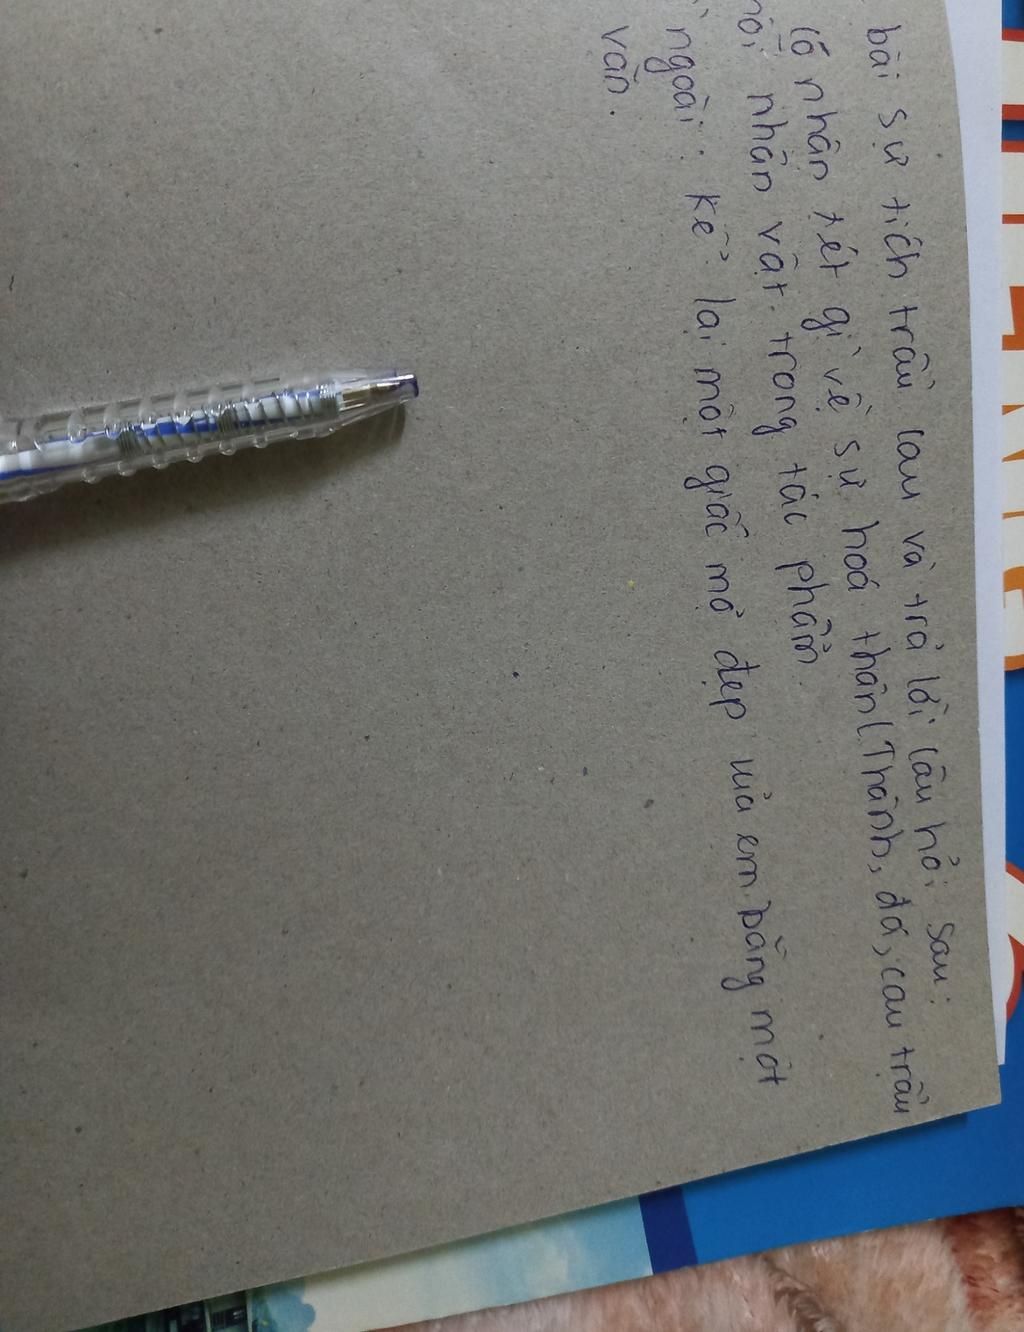 bài sự tích trầu cau và trả lời câu hỏi sau:
có nhận xét gì về sự hoá thân (Thành, đá, cau trầu
nhân vật trong tác phẩm.
ngoài: kể lại một giấc mơ đẹp của em bằng một
văn.